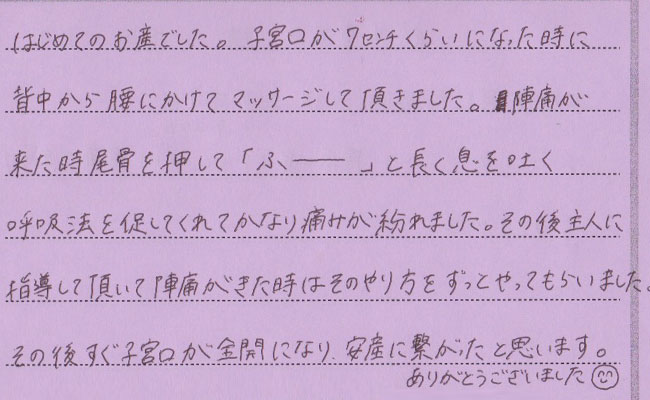 はじめてのお産でした。子宮口が7センチくらいになった時に
背中から腰にかけてマッサージして頂きました。陣痛が
来た時尾骨を押して「ふ――」と長く息を吐く
呼吸法を促してくれてかなり痛みが紛れました。その後主人に
指導して頂いて陣痛がきた時はそのやり方をずっとやってもらいました。
その後すぐ子宮口が全開になり、安産に繋がったと思います。
ありがとうございました